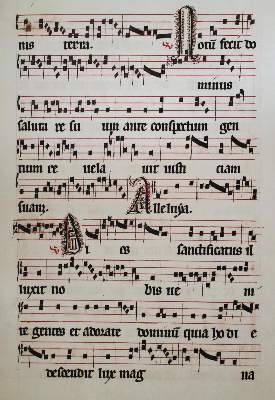 nis terra. Notū fecit do
minus
salutare suum ante conspectum gen
tium re vela vit iusti ciam
suam. Alleluya.
Dies sanctificatus il
luxit no bis ve ni
te gentes et adorate dominū quia ho di e
descendit lux mag na